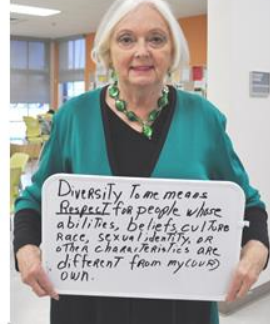 DIVERSITY TO me means
Respect for people whose
abilities, beliefs, culture
Race, sexual identity, or
other characteristics are
different from my (our)
own.